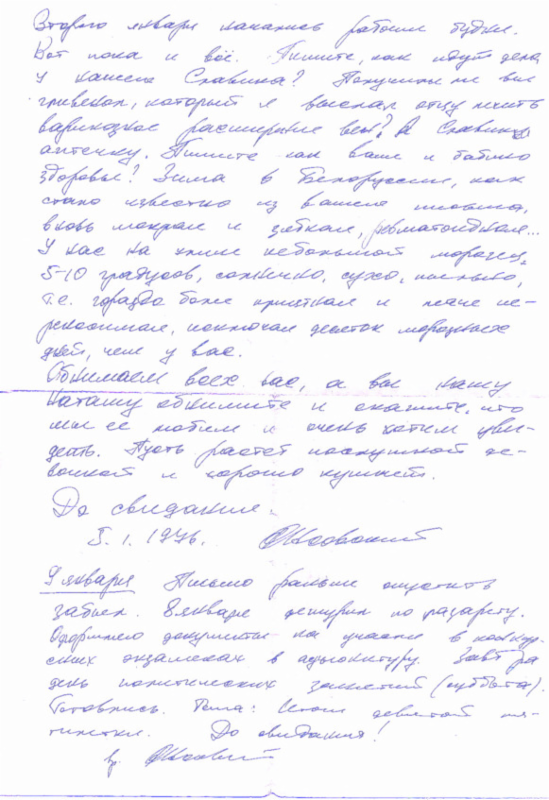 Второго января начались рабочие будни.
Вот пока и всё. Пишите, как идут дела
у нашего Славика? Получили ли вы
гливенол, который я выслал отцу лечить
варикозное расширение вен? А Славику
аптечку. Пишите как ваше и бабкино
здоровье? Зима в Белоруссии, как
стало известно из вашего письма,
вновь мокрая и зябкая, ревматоидная...
У нас на
небольшой морозец,
5-10 градусов, солнечно, сухо, пыльно,
т.е. гораздо более приятная и легче пе-
реносимая, исключая десяток морозных
дней, чем у вас.
Обнимаем всех вас, а вы нашу
Наташу обнимите и скажите, что
мы ее любим и очень хотим уви-
деть. Пусть растет послушной де-
вочкой и хорошо кушает.
До свидания.
5.1.1976.
9 января Письмо раньше опустить
забыл. 8 января дежурил по лазарету.
Оформляю документы на участие в конкур-
сных экзаменах в адъюнктуру. Завтра
день политических занятий (суббота).
Готовлюсь. Тема: Итоги девятой пя-
тилетки. До свидания!